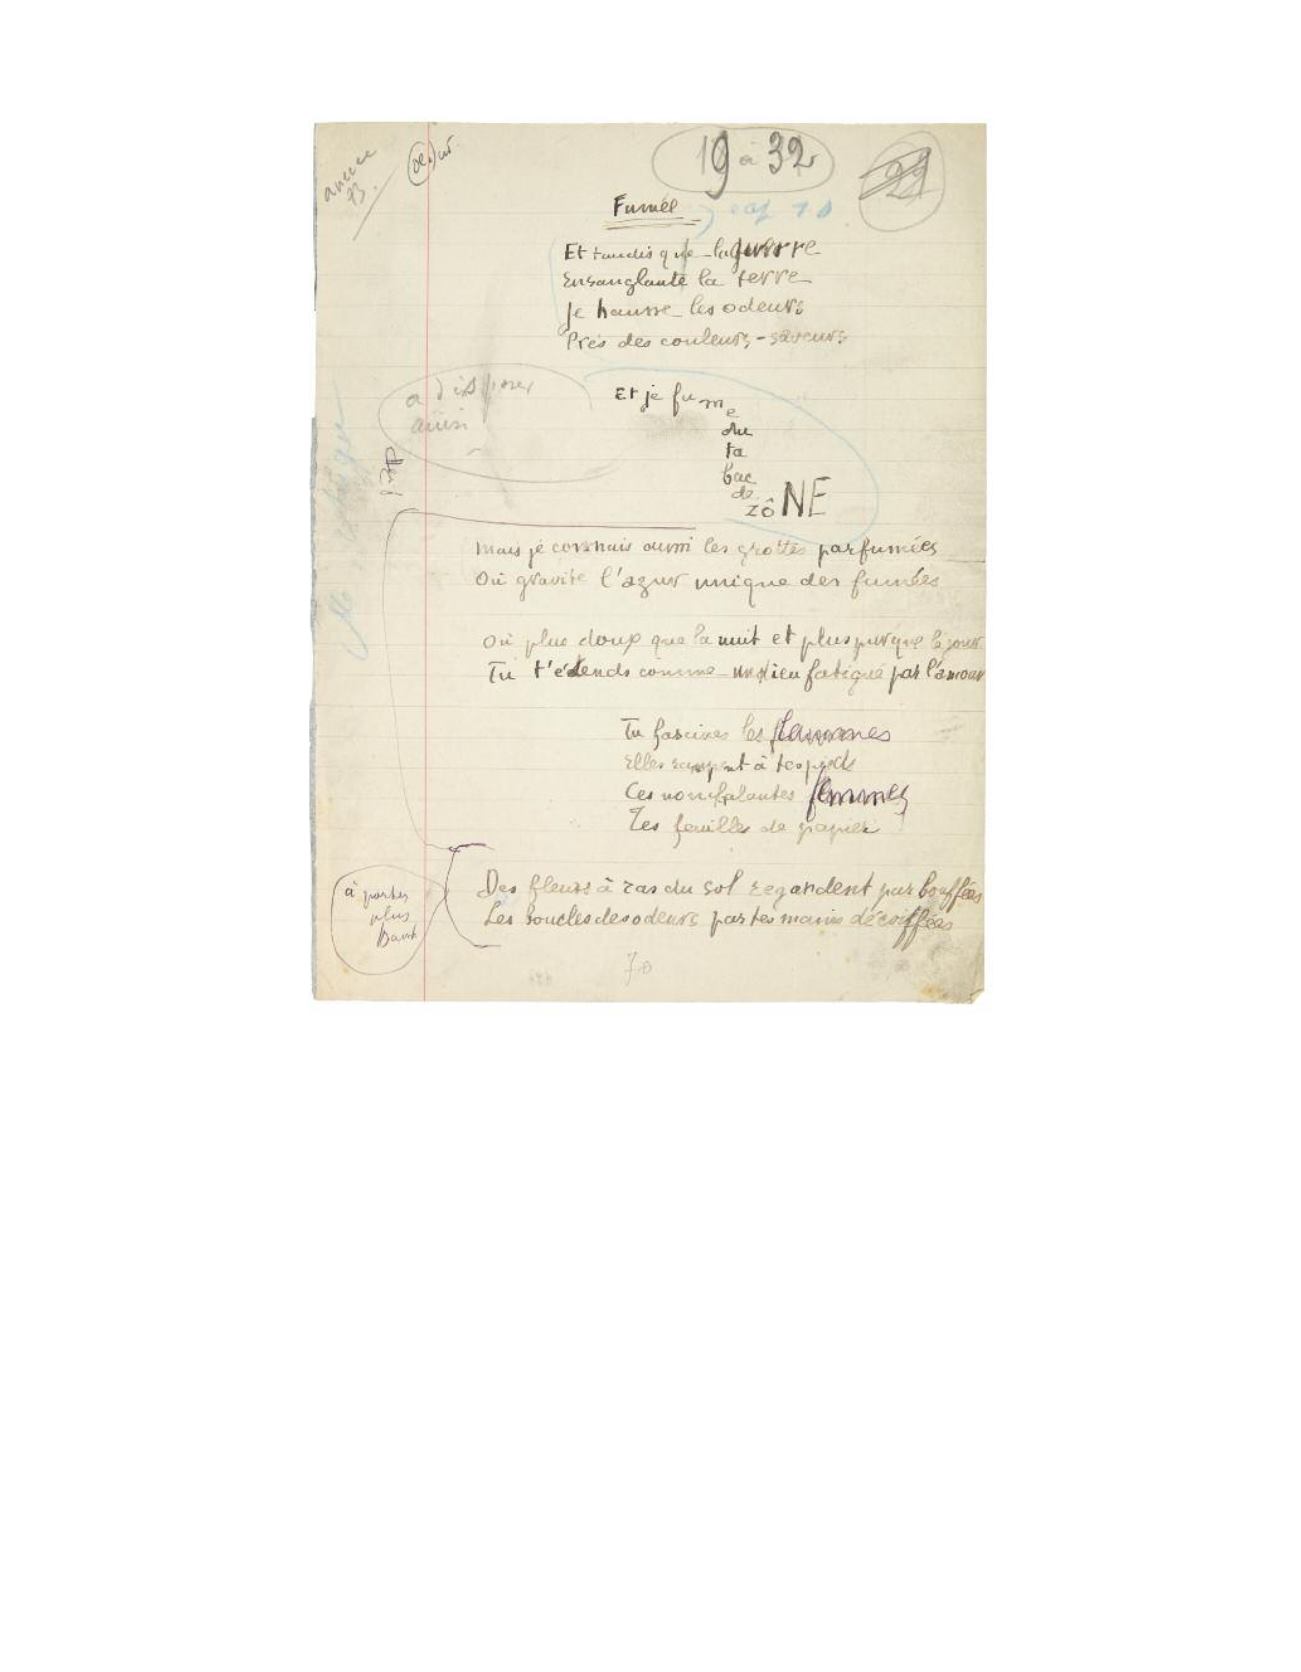 19 à 32
22
Fumée
cap 10
Et tandis que la guerre
Ensanglante la terre
Je hausse les odeurs
Près des couleurs-saveurs
à disposer
ainsi
Et je fume
du
ta
bac
de
zôNE
Mais je connais aussi les grottes parfumées
Où gravite l'azur unique des fumées
Où plus doux que la nuit et plus pur que le jour
Tu t'étends comme un dieu fatigué par l'amour
Tu fascines les flammes
Elles rampent à tes pieds
Ces nonchalantes femmes
Tes feuilles de papier
à porter
plus
haut
Des fleurs à ras du sol regardent par bouffées
Les boucles des odeurs par tes mains décoiffées